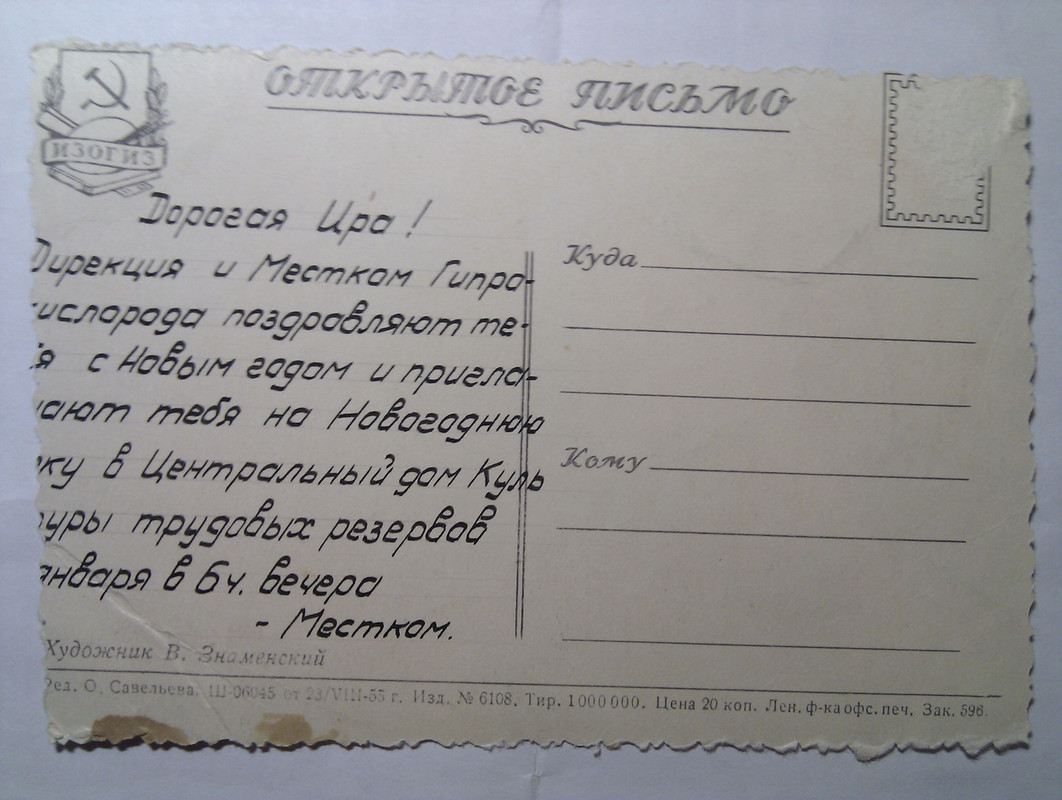 ОТКРЫТОЕ ПИСЬМО
ИЗОГИЗ
Дорогая Ира!
Дирекция и Местком Гипро-
ислорода поздравляют те-
я с Новым годом и пригла-
ают тебя на Новогоднюю
ку в Центральный дом Куль
уры трудовых резервов
января в 6 ч. вечера
- Местком.
Куда
Кому
Художник В. Знаменский
Ред. О. Савельева. Ш-06045 от 23/VIII-55 г. Изд. № 6108. Тир. 1000000. Цена 20 коп. Лен. ф-ка офс. печ. Зак. 596.